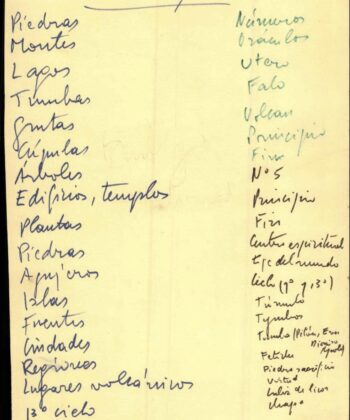 Piedras
Montes
Lagos
Tumbas
Grutas
Cúpulas
Árboles
Edificios, templos
Plantas
Piedras
Agujeros
Islas
Fuentes
Ciudades
Regiones
Lugares volcánicos
1º ciclo
Números
Oráculos
Utero
Falo
Volcan
Principio
Fin
Nº 5
Principio
Fin
Centro espiritual
Eje del mundo
Ciclo (1º y 3º)
Túmulo
Tymbos
Tumba (Pitón,
Fetiche
Piedra sacrificio
Virtud